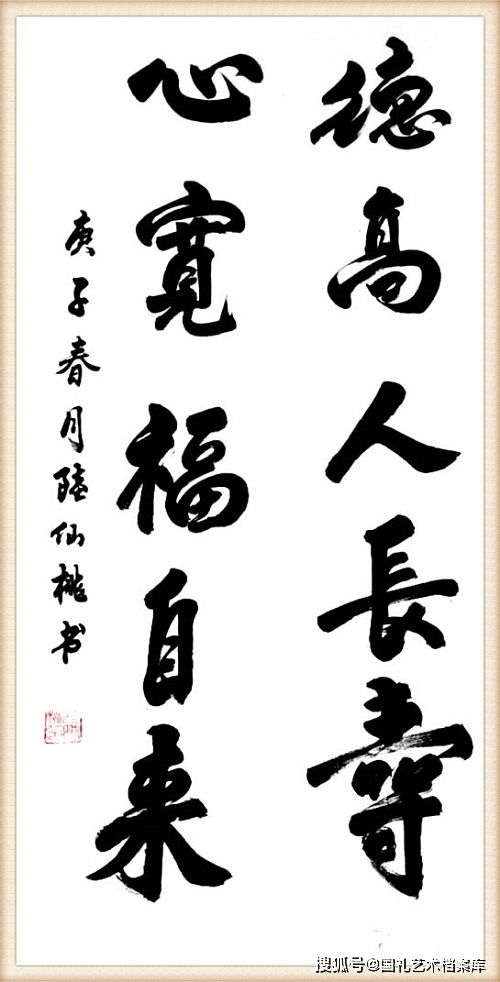 德高人長壽
心寬福自来
庚子春月陆仙桃书
搜狐号@国礼艺术档案库